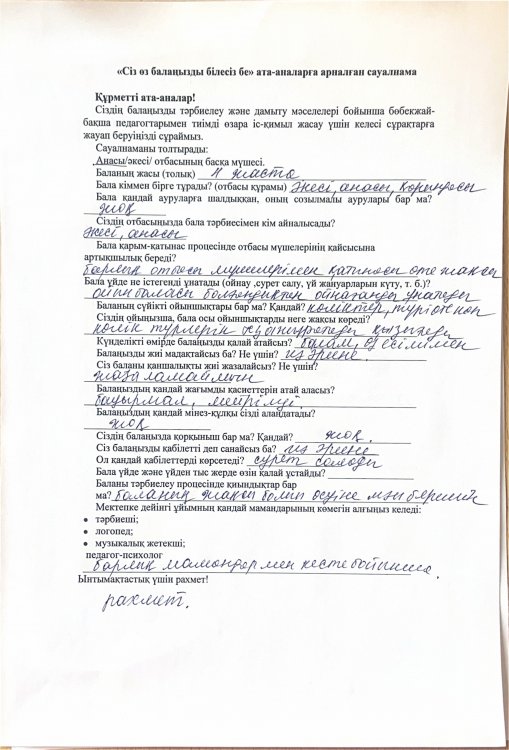 «Сіз өз балаңызды білесіз бе» ата-аналарға арналған сауалнама
Құрметті ата-аналар!
Сіздің балаңызды тәрбиелеу және дамыту мәселелері бойынша бөбекжай-
бақша педагогтарымен тиімді өзара іс-қимыл жасау үшін келесі сұрақтарға
жауап беруіңізді сұраймыз.
Сауалнаманы толтырады:
Анасы/әкесі/ отбасының басқа мүшесі.
Баланың жасы (толық) 4 жаста
Бала кіммен бірге тұрады? (отбасы құрамы) Әкесі, анасы, қарындасы
Бала қандай ауруларға шалдыққан, оның созылмалы аурулары бар ма?
жоқ
Сіздің отбасыңызда бала тәрбиесімен кім айналысады?
Әкесі, анасы
Бала қарым-қатынас процесінде отбасы мүшелерінің қайсысына
артықшылық береді?
барлық отбасы мүшелерімен қатынасы өте жақсы
Бала үйде не істегенді ұнатады (ойнау ,сурет салу, үй жануарларын күту, т. б.)?
ойын баласы болғандықтан ойнағанды ұнатады
Баланың сүйікті ойыншықтары бар ма? Қандай? көліктер, түрлі
Сіздің ойыңызша, бала осы ойыншықтарды неге жақсы көреді?
көлік түрлерін қызығады
Күнделікті өмірде балаңызды қалай атайсыз? балам, өз есімімен
Балаңызды жиі мадақтайсыз ба? Не үшін? иә әрине.
Сіз баланы қаншалықты жиі жазалайсыз? Не үшін?
жазаламаймын
Балаңыздың қандай жағымды қасиеттерін атай аласыз?
бауырмал, мейірімді
Балаңыздың қандай мінез-құлқы сізді алаңдатады?
жоқ
Сіздің балаңызда қорқыныш бар ма? Қандай? жоқ.
Сіз балаңызды қабілетті деп санайсыз ба? иә әрине
Ол қандай қабілеттерді көрсетеді? сурет салады
Бала үйде және үйден тыс жерде өзін қалай ұстайды?
Баланы тәрбиелеу процесінде қиындықтар бар
ма? баланың жақсы болып өсуіне мән беремін
Мектепке дейінгі ұйымның қандай мамандарының көмегін алғыңыз келеді:
• тәрбиеші;
• логопед;
• музыкалық жетекші;
педагог-психолог
барлық мамандармен кесте бойынша.
Ынтымақтастық үшін рахмет!
рахмет.